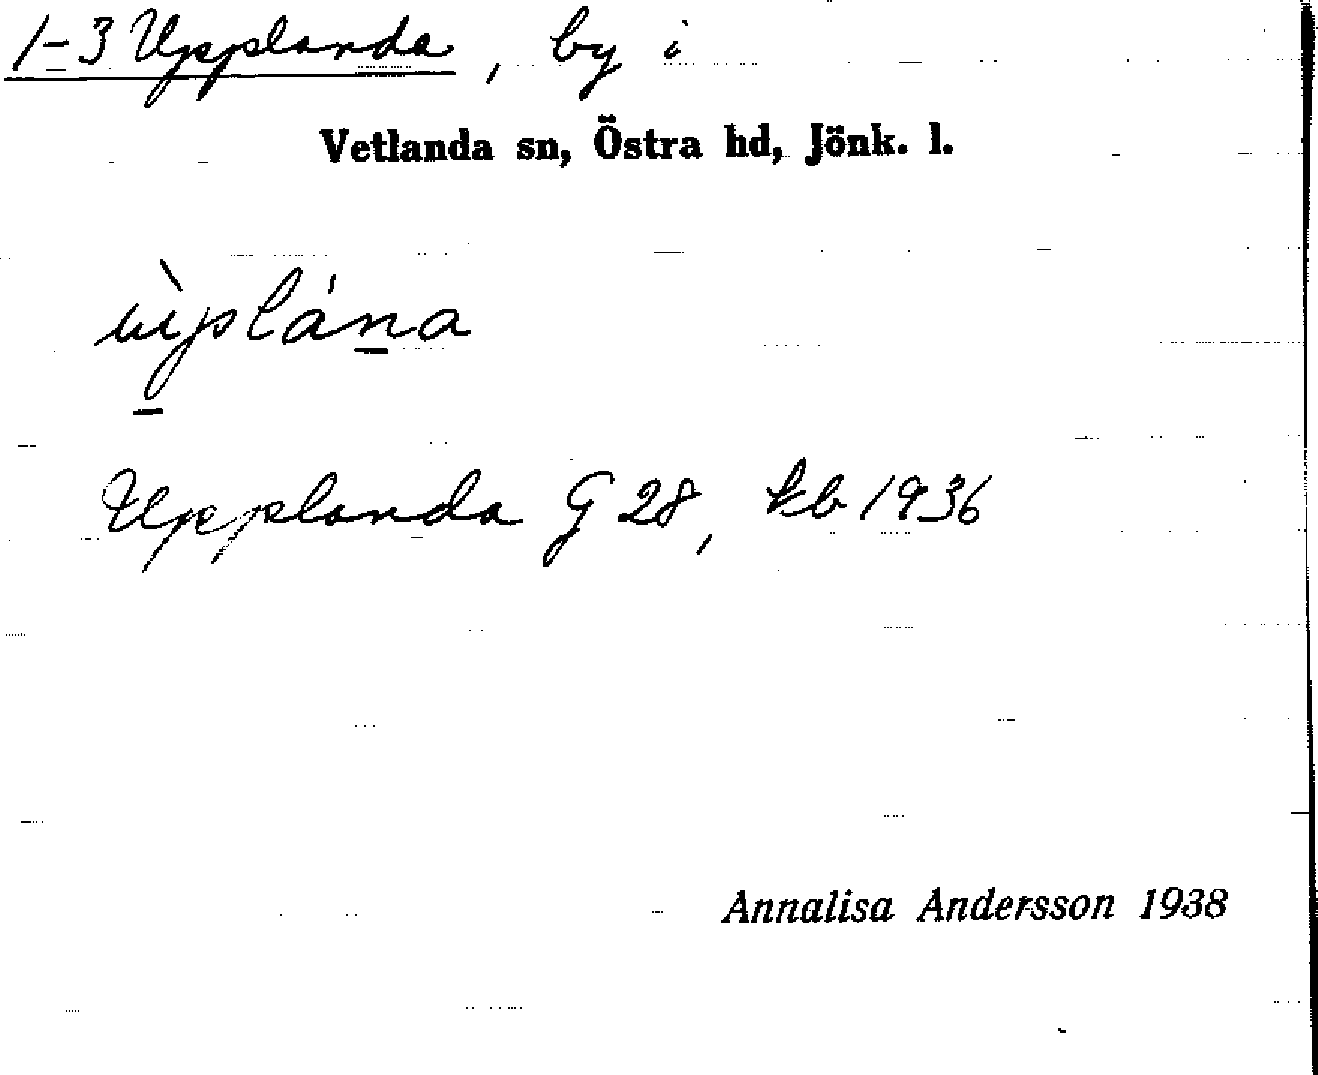 1-3 Upplanda, by i
Vetlanda sn, Östra hd, Jönk. l.
ùp̲lán̲a
Upplanda G 28, kb 1936
Annalisa Andersson 1938